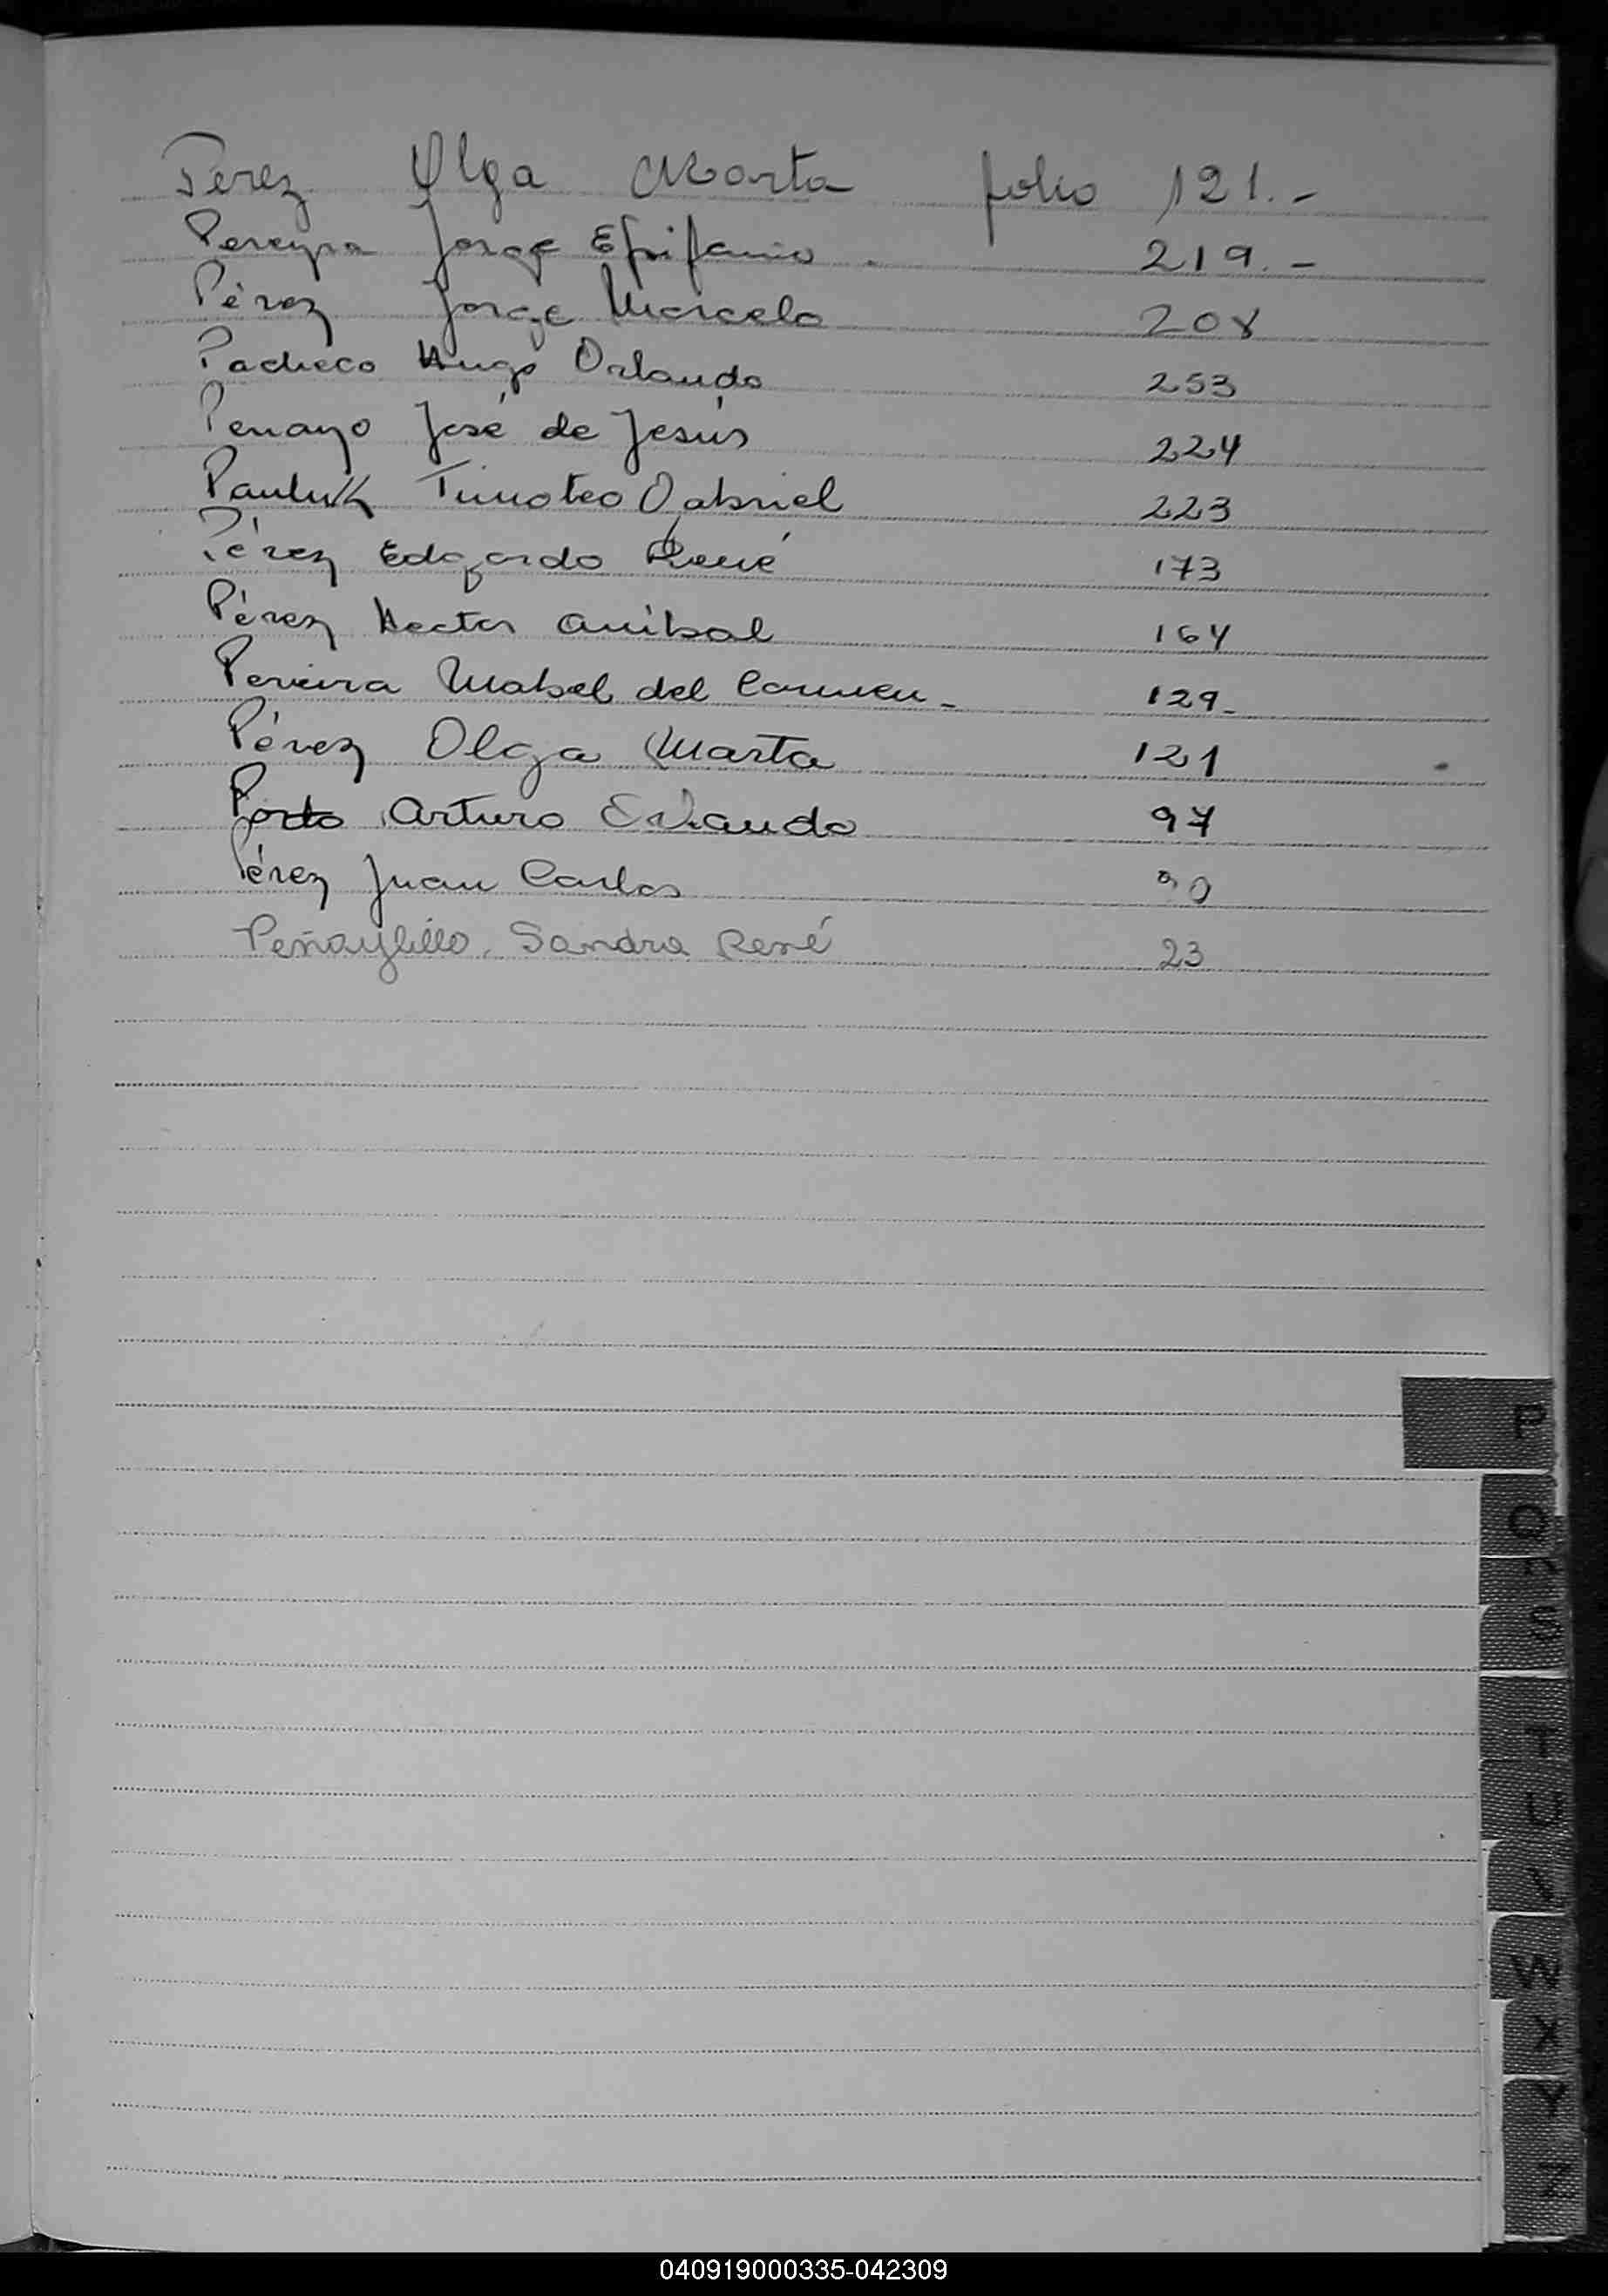 Perez Olga Marta folio 121.-
Pereyra Jorge Epifanio. 219.-
Pérez Jorge Marcelo 208
Pacheco Hugo Orlando 253
Penayo José de Jesús 224
Pauluk Timoteo Gabriel 223
Pérez Edgardo René 173
Pérez Hector Anibal 164
Pereira Mabel del Carmen - 129-
Pérez Olga Marta 121
Porto Arturo 97
Pérez Juan Carlos 90
Peñaylillo, Sandra René 23
P
Q
S
T
U
W
X
Y
Z
040919000335-042309